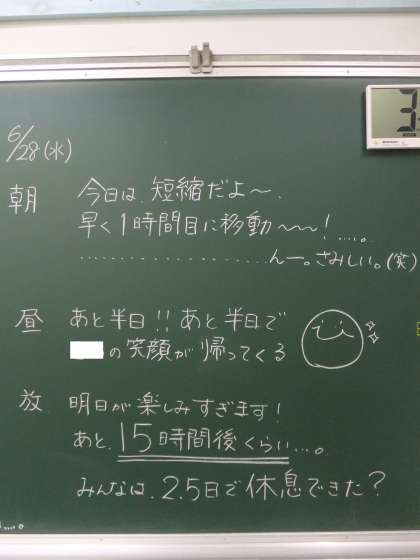 6/28(水)
朝 今日は、短縮だよ～、
早く1時間目に移動～～～!
....。
....................んー。さみしい。(笑)
昼 あと半日!! あと半日で
の笑顔が帰ってくる
放 明日が楽しみすぎます!
あと、15時間後くらい...。
みんなは、2.5日で休息できた?
3